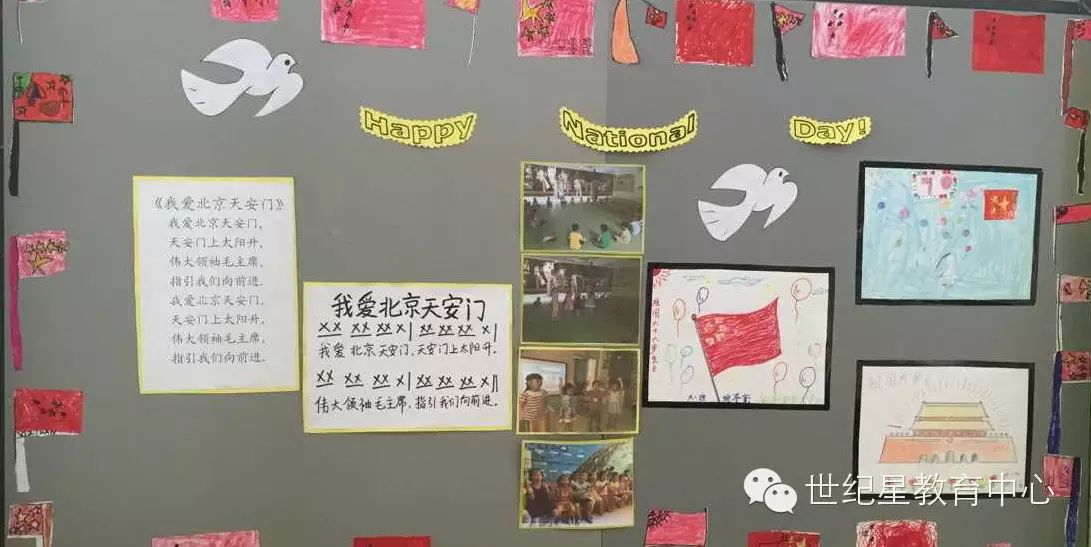 Happy National Day!
《我爱北京天安门》
我爱北京天安门，
天安门上太阳升，
伟大领袖毛主席，
指引我们向前进。
我爱北京天安门，
天安门上太阳升，
伟大领袖毛主席，
指引我们向前进。
我爱北京天安门
XX XX XX X| XX XX XX X|
我爱 北京天安门，天安门上太阳升。
XX XX XX X| XX XX XX X||
伟大领袖毛主席，指引我们向前进。
祖国六十六岁生日
世纪星教育中心